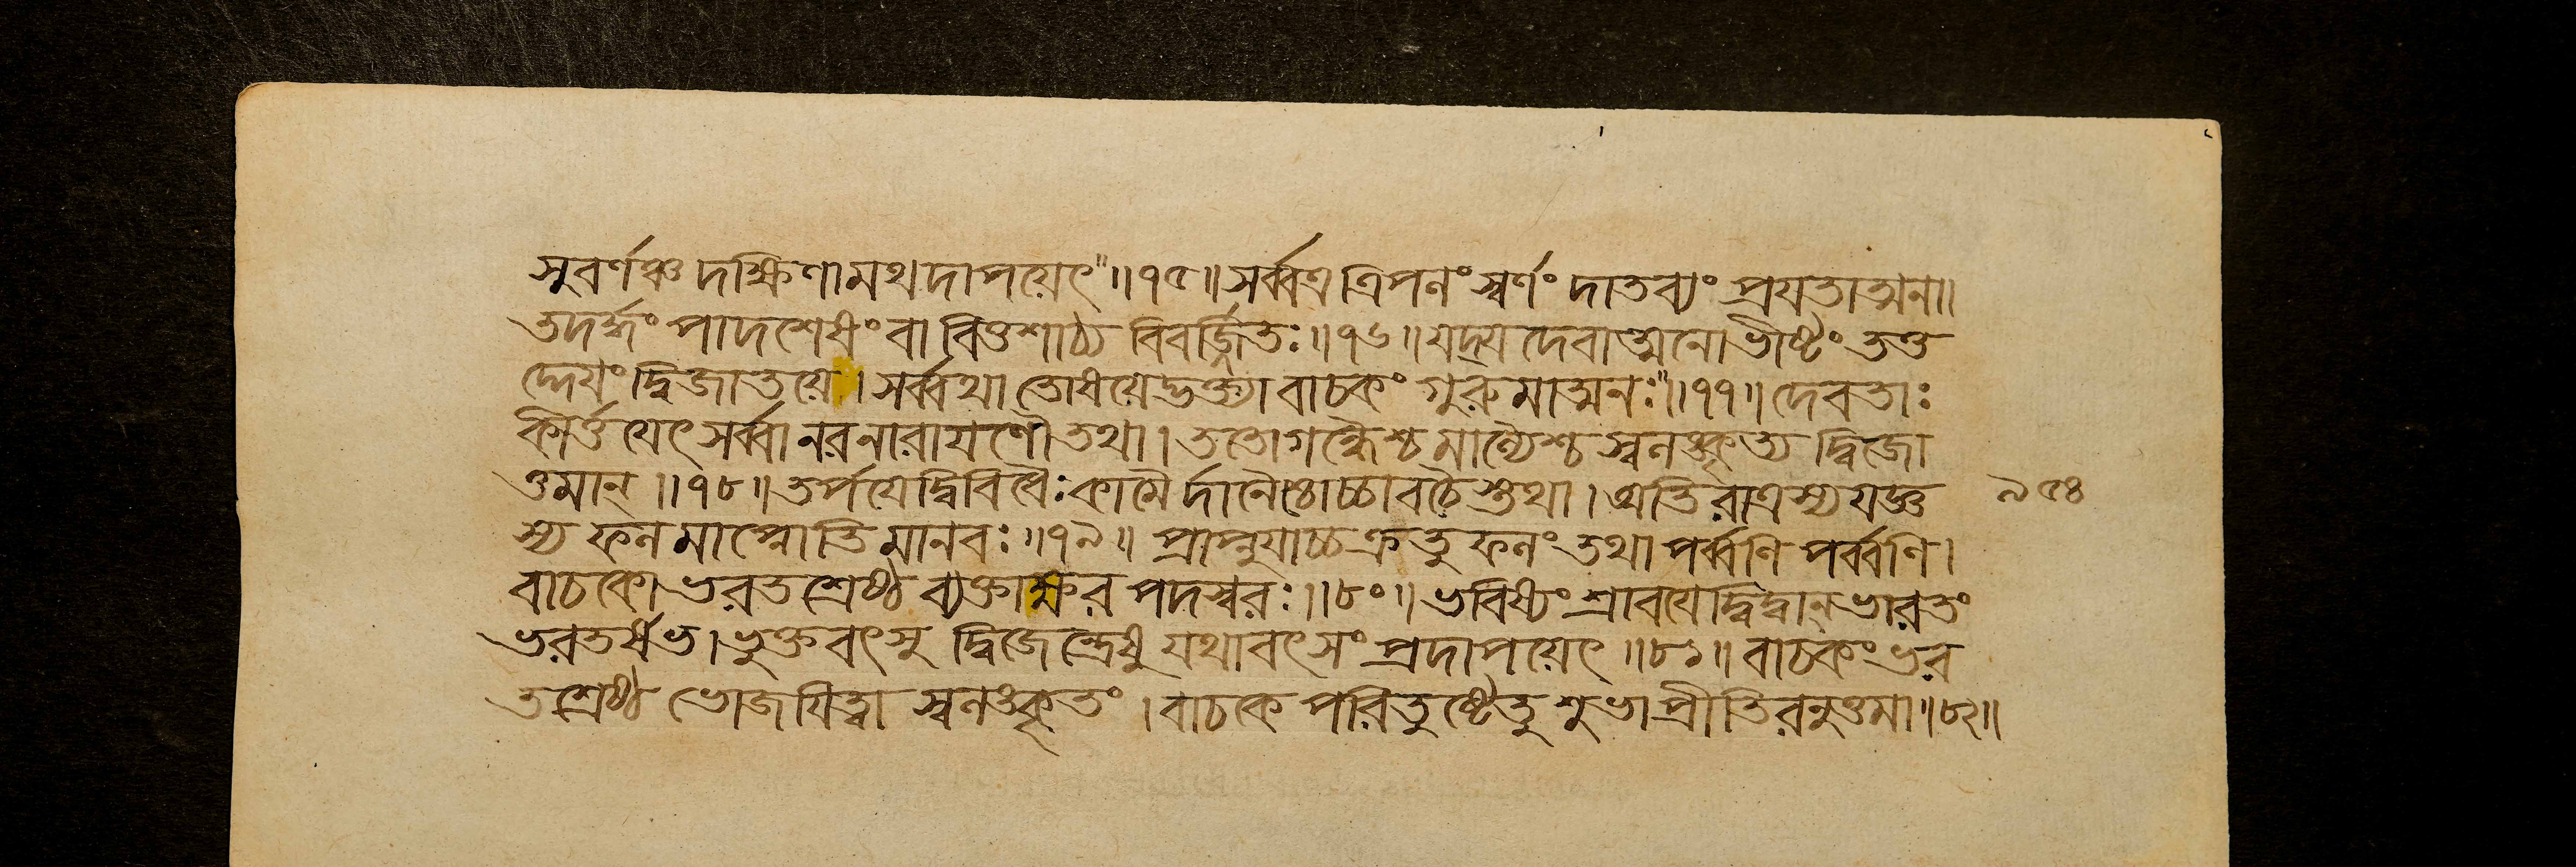 সুবর্ণঞ্চ দক্ষিণামথ দাপয়েৎ ॥ ৭৫ ॥ সর্ব্বত্র ত্রিপলং স্বর্ণং দাতব্যং প্রযতাত্মনা ॥
তদর্দ্ধং পাদশেষং বা বিত্তশাঠ্য বিবর্জ্জিতঃ ॥ ৭৬ ॥ যদ্যদেবাত্মনোভীষ্টং তত্ত
দ্দেয়ং দ্বিজাতয়ে । সর্ব্বথা তোষয়েদ্ভক্ত্যা বাচকং গুরুমাত্মনঃ ॥ ৭৭ ॥ দেবতাঃ
কীর্ত্তয়েৎ সর্ব্বা নরনারায়ণৌ তথা । ততো গন্ধৈশ্চ মাল্যৈশ্চ স্বলঙ্কৃত্য দ্বিজো
ত্তমান্ ॥ ৭৮ ॥ তর্পয়েদ্বিবিধৈঃ কামৈর্দানৈশ্চোচ্চাবচৈস্তথা । অতিরাত্রস্য যজ্ঞ ৯৫৪
স্য ফলমাপ্নোতি মানবঃ ॥ ৭৯ ॥ প্রাপ্নুয়াচ্চ ক্রতুফলং তথা পর্ব্বণি পর্ব্বণি ।
বাচকো ভরতশ্রেষ্ঠ ব্যক্তাক্ষর পদস্বরঃ ॥ ৮০ ॥ ভবিষ্যং শ্রাবয়েদ্বিদ্বান্ ভারতং
ভরতর্ষভ । ভুক্তবৎসু দ্বিজেন্দ্রেষু যথাবৎ সংপ্রদাপয়েৎ ॥ ৮১ ॥ বাচকং ভর
তশ্রেষ্ঠ ভোজয়িত্বা স্বলঙ্কৃতং । বাচকে পরিতুষ্টে তু শুভা প্রীতিরনুত্তমা ॥ ৮২ ॥